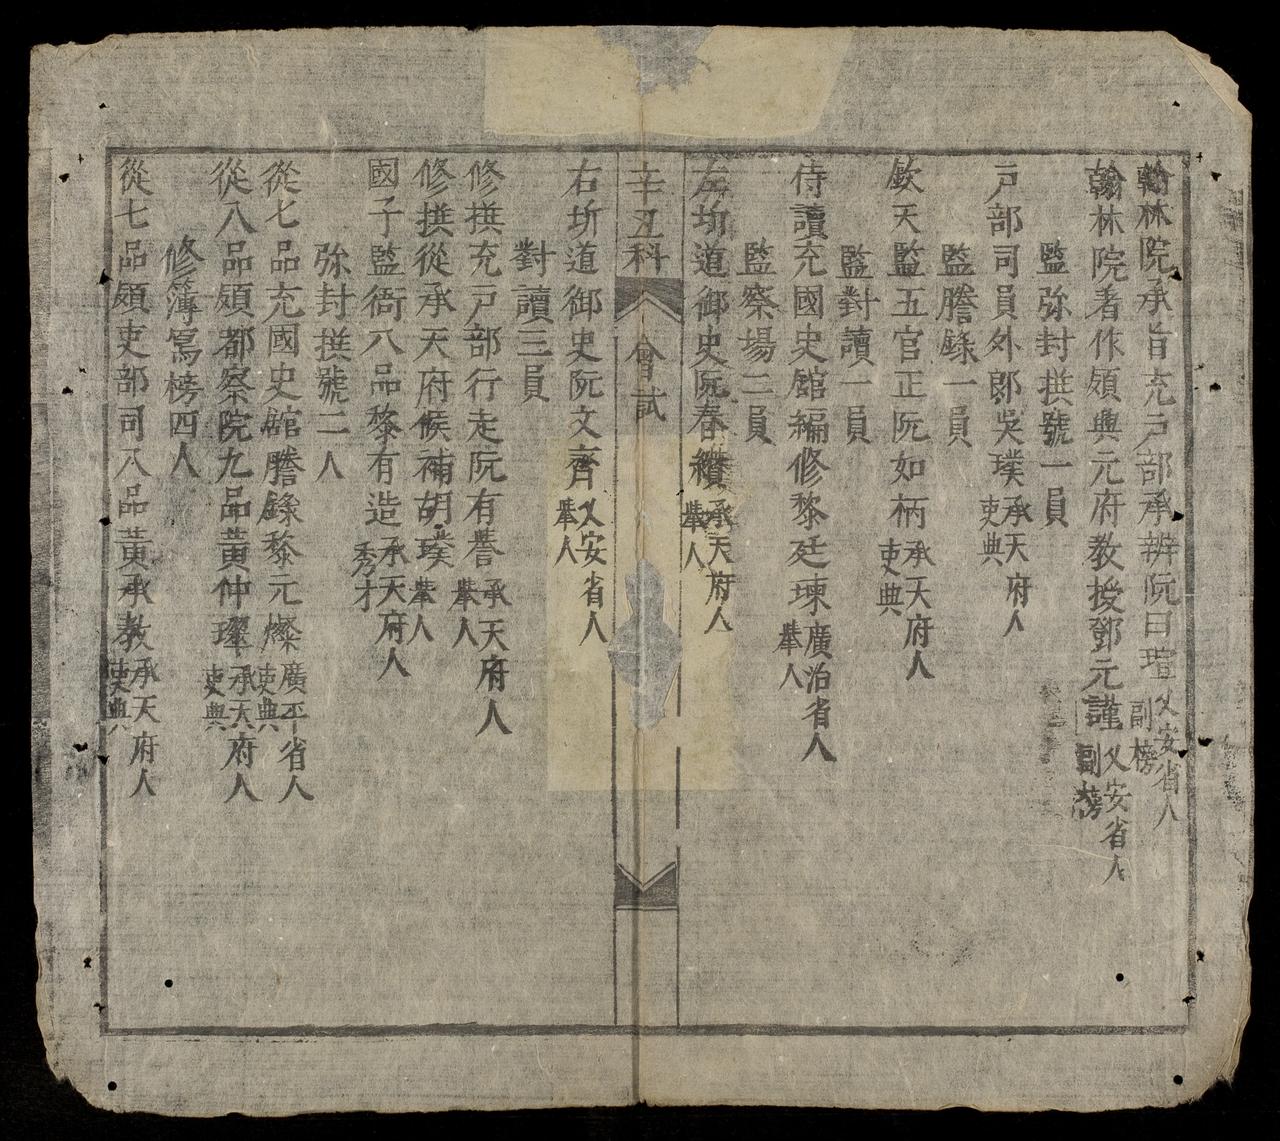 翰林院承旨充户部承辨阮曰瑄乂安省人副榜
翰林院著作領興元府教授鄧元謹乂安省人副榜
監弥封撰號一員
户部司員外郎吳璞承天府人吏典
監謄錄一員
欽天監五官正阮如柄承天府人吏典
監對讀一員
侍讀充國史館編修黎廷㻧廣治省人舉人
監察場二員
左圻道御史阮春纘承天府人舉人
辛丑科 會試
右圻道御史阮文齊乂安省人舉人
對讀三員
修撰充户部行走阮有譽承天府人舉人
修撰從承天府候補胡璞舉人
國子監衙八品黎有造承天府人秀才
弥封撰號二人
從七品充國史館謄錄黎元燦廣平省人吏典
從八品領都察院九品黃仲璨承天府人吏典
修簿寫榜四人
從七品領吏部司八品黃承教承天府人吏典